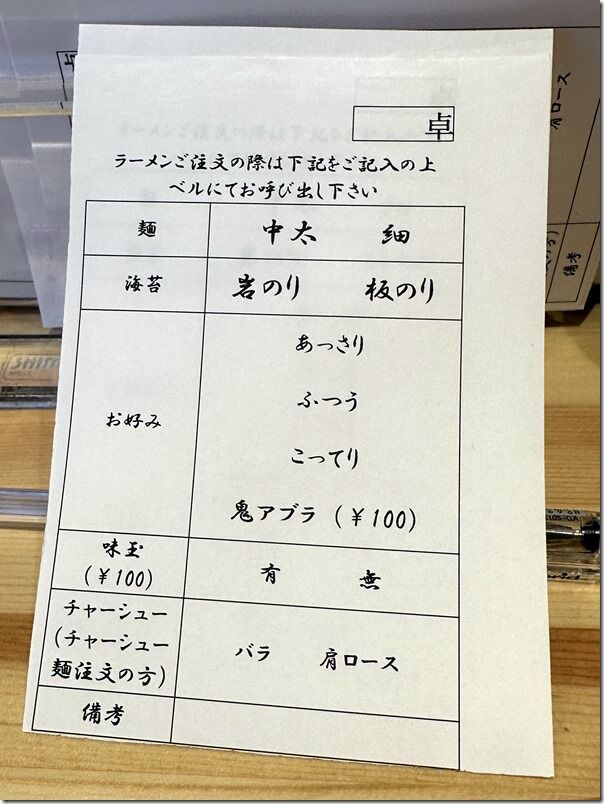 卓
ラーメンご注文の際は下記をご記入の上
ベルにてお呼び出し下さい
麺 中太 細
海苔 岩のり 板のり
お好み
あっさり
ふつう
こってり
鬼アブラ（￥100）
味玉
（￥100） 有 無
チャーシュー
（チャーシュー
麺注文の方） バラ 肩ロース
備考
肩ロース
備考